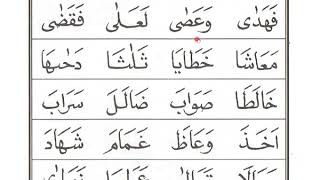 فَهَدٰى وَعَصٰى لَعَلٰى فَقَضٰى
مَعَاشَا خَطَايَا ثَلٰثَا دَحٰىهَا
خَالَطَا صَوَابَ ضَالَلَ سَرَابَ
اَخَذَ وَعَاظَ غَمَامَ شَهَادَ